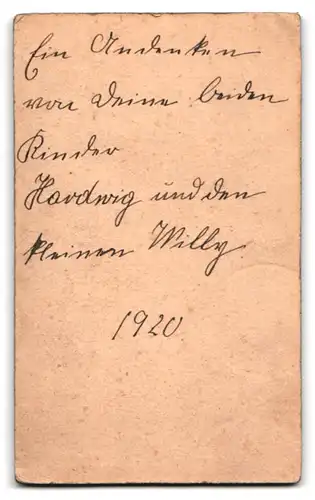 Ein Andenken
von Deine beiden
Kinder
Hardwig und den
kleinen Willy
1920